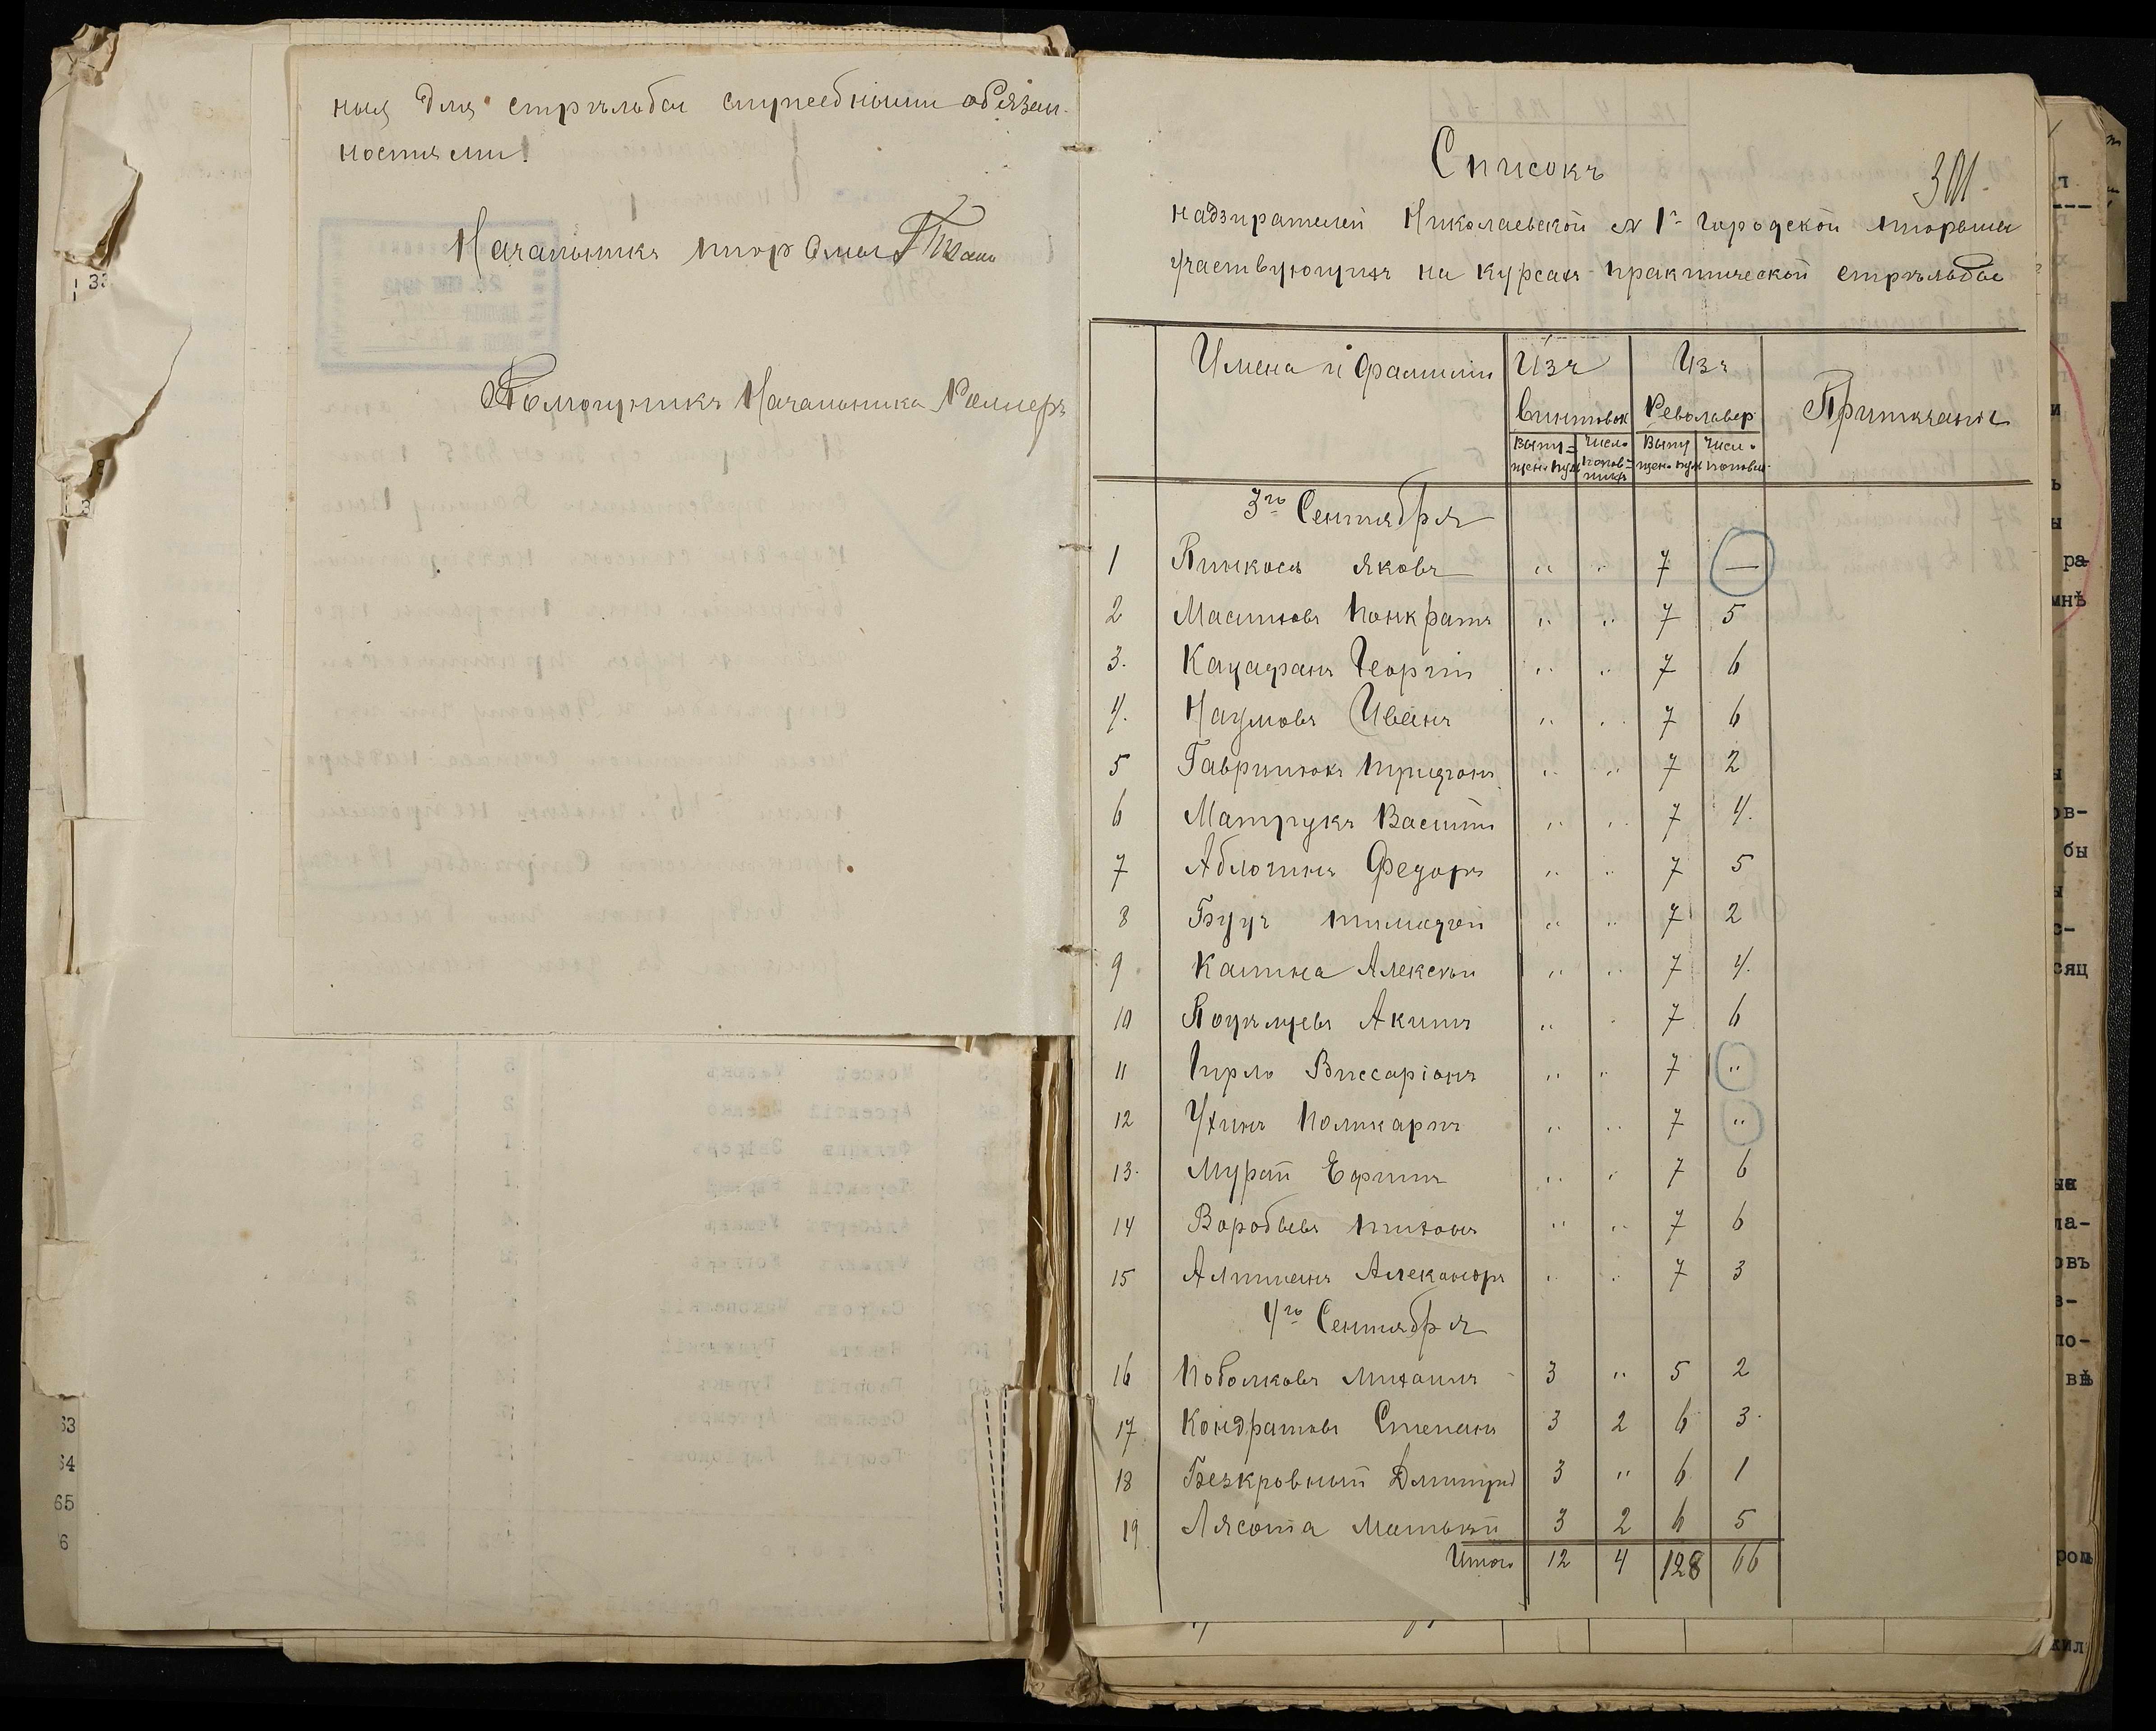 ныя для стрѣльбы служебными обязан-
ностями.
Начальникъ тюрьмы
Помощникъ Начальника
301.
Списокъ
надзирателей Николаевской № 1й городской тюрьмы
участвующихъ на курсахъ практической стрѣльбы
Имена и фамиліи Изъ винтовок Изъ Револьвер Примѣчаніе
Выпу-щен. пул Число попов- Выпу щен. пул Число попов
3го Сентября
1 Пинкосъ Яковъ " " 7 —
2 Маслюковъ Понкратъ " " 7 5
3. Кацафанъ Георгій " " 7 6
4. Наумовъ Иванъ " " 7 6
5 Гаврилюкъ Трифонъ " " 7 2
6 Матрукъ Василій " " 7 4.
7 Аблогинъ Федоръ " " 7 5
8 Буцъ Тимофей " " 7 2
9 Калина Алексѣй " " 7 4.
10 Поцѣлуевъ Акимъ " " 7 6
11 Гирло Виссаріонъ " " 7 "
12 Ухинъ Поликарпъ " " 7 "
13. Мурай Ефимъ " " 7 6
14 Воробьевъ Тихонъ " " 7 6
15 Алтманъ Александръ " " 7 3
4го Сентября
16 Поболковъ Михаилъ 3 " 5 2
17 Кондратовъ Степанъ 3 2 6 3.
18 Безкровный Дмитрій 3 " 6 1
19 Лясота Матвѣй 3 2 6 5
Итого 12 4 128 66
63
64
65
ра-
мнѣ
бы
сяц
вѣ